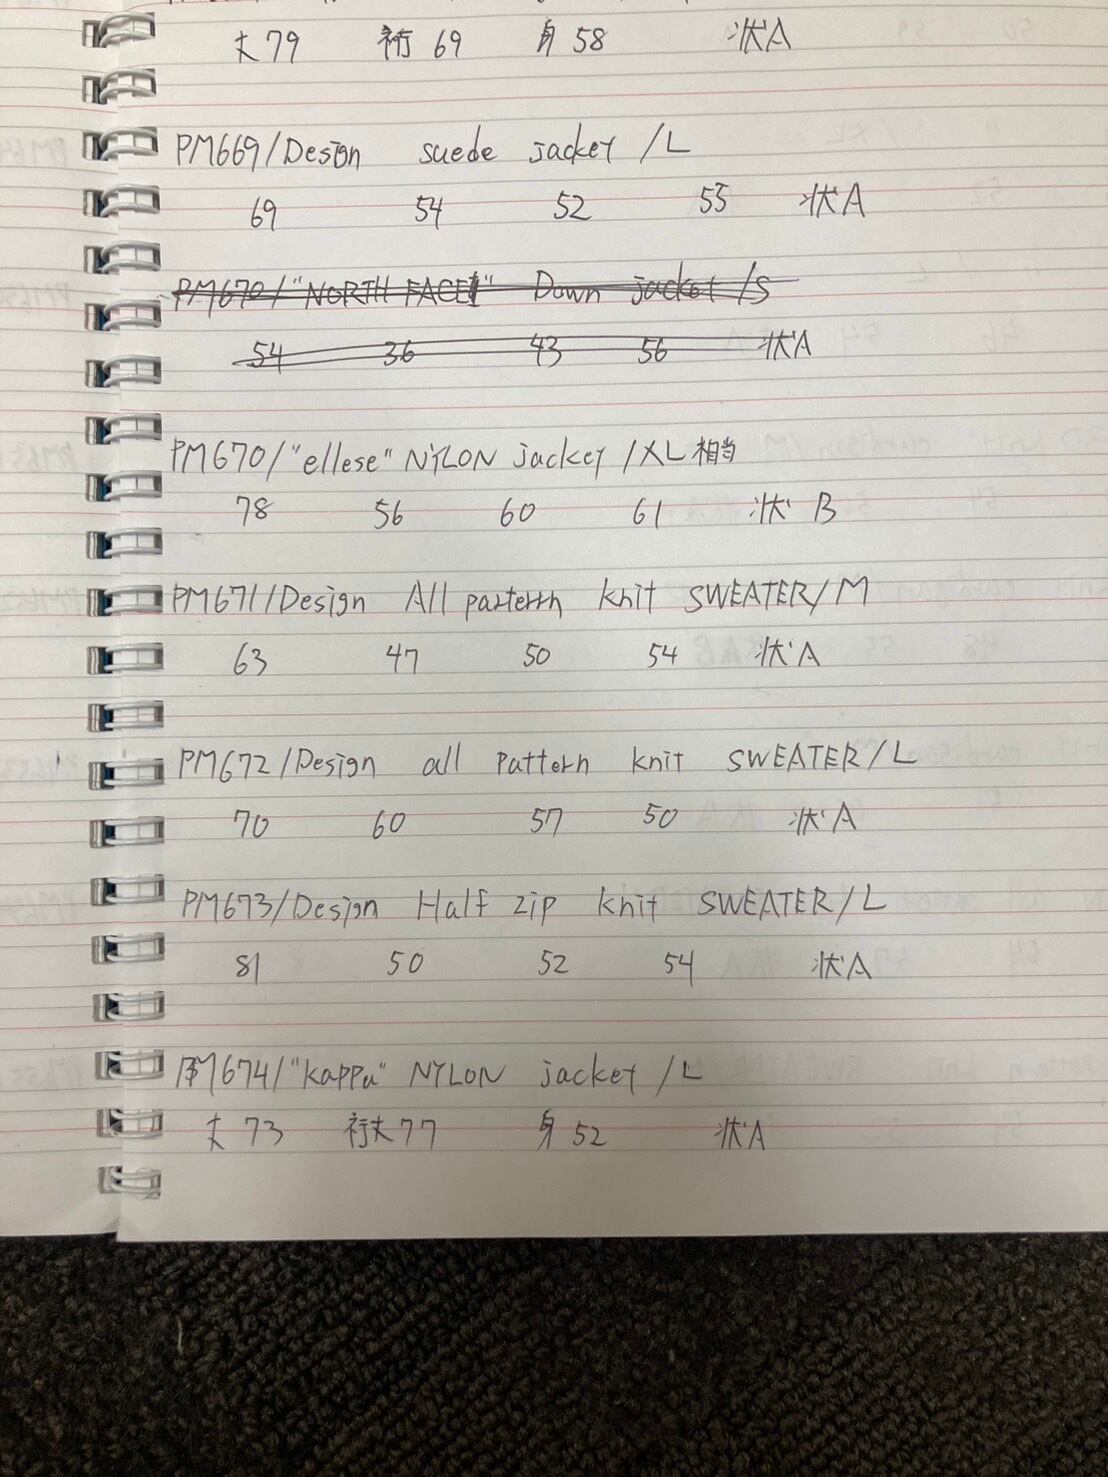 丈79 裄69 身58 状A
PM669/Design suede jacket /L
69 54 52 55 状A
PM670/"NORTH FACE" Down jacket /S
54 36 43 56 状A
PM670/"ellese" NYLON jacket /XL相当
78 56 60 61 状B
PM671/Design All patterth knit SWEATER/M
63 47 50 54 状A
PM672/Design all pattern knit SWEATER/L
70 60 57 50 状A
PM673/Design Half zip knit SWEATER/L
81 50 52 54 状A
PM674/"kappa" NYLON jacket /L
丈73 裄丈77 身52 状A